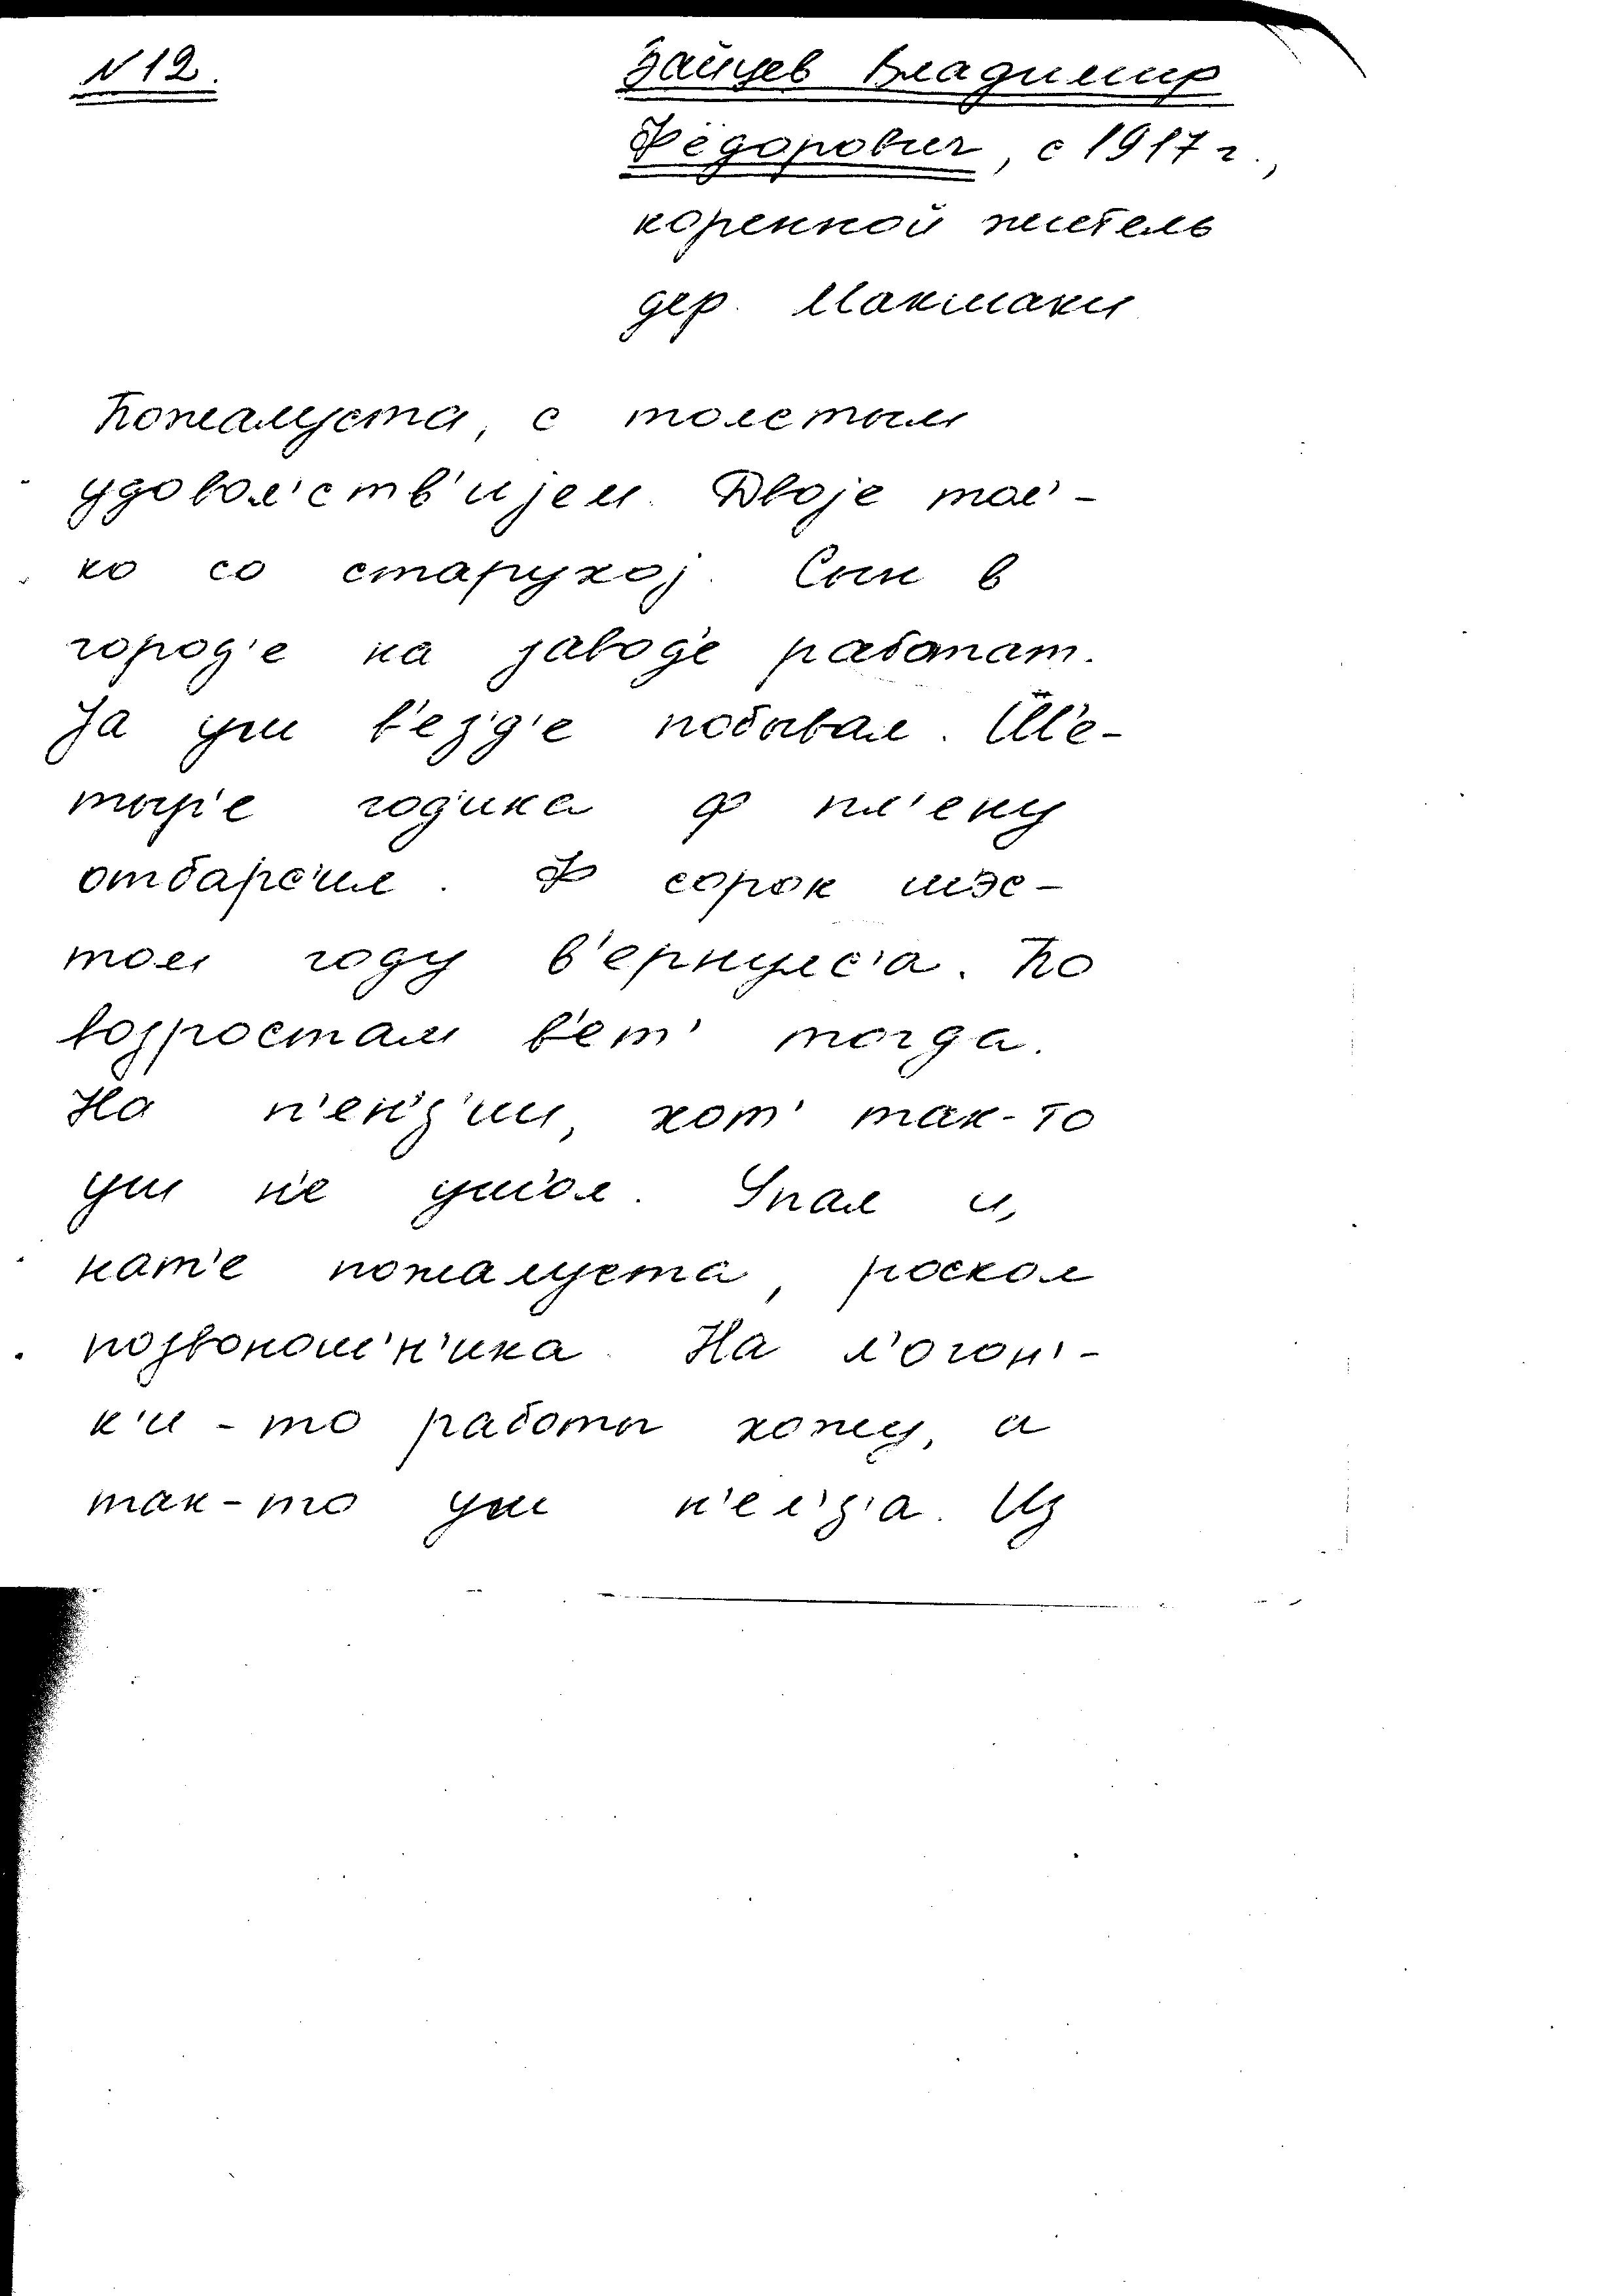 N 12.
Зайцев Владимир
Фёдорович, с 1917 г.,
коренной житель
дер. Макшаки
Пожалуста, с толстым
удовол'ств'ијем. Двоје тол'-
ко со старухој. Сын в
город'е на заводе работат.
Jа уш в'ез'д'е побывал. Ш'е-
тыр'е год'ика ф пл'ену
отбарс'ил. Ф сорок шэс-
том году в'ернулс'а. По
возростам в'ет' тогда.
На п'ен'з'ии, хот' так-то
уш н'е ушол. Упал и,
нат'е пожалуста, роскол
позвонош'н'ика. На л'огон'-
к'и-то работы хожу, а
так-то уш н'ел'з'а. Из